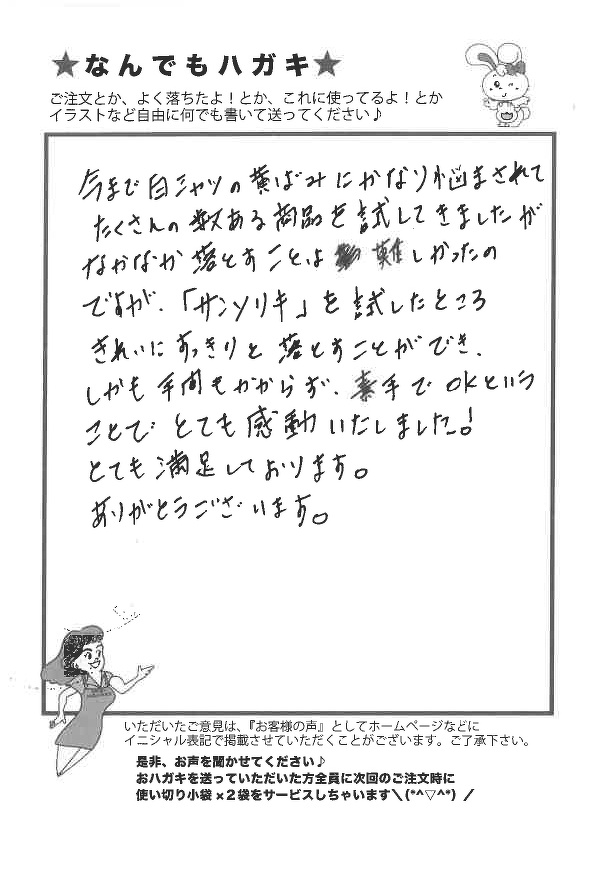 ★なんでもハガキ★
ご注文とか、よく落ちたよ！とか、これに使ってるよ！とか
イラストなど自由に何でも書いて送ってください♪
今まで白シャツの黄ばみにかなり悩まされて
たくさんの数ある商品を試してきましたが
なかなか落とすことは難しかったの
ですが、「サンソリキ」を試したところ
きれいにすっきりと落とすことができ、
しかも手間もかからず、素手でOKという
ことでとても感動いたしました!
とても満足しております。
ありがとうございます。
いただいたご意見は、『お客様の声』としてホームページなどに
イニシャル表記で掲載させていただくことがございます。ご了承下さい。
是非、お声を聞かせてください♪
おハガキを送っていただいた方全員に次回のご注文時に
使い切り小袋×2袋をサービスしちゃいます＼(*^▽^*)／